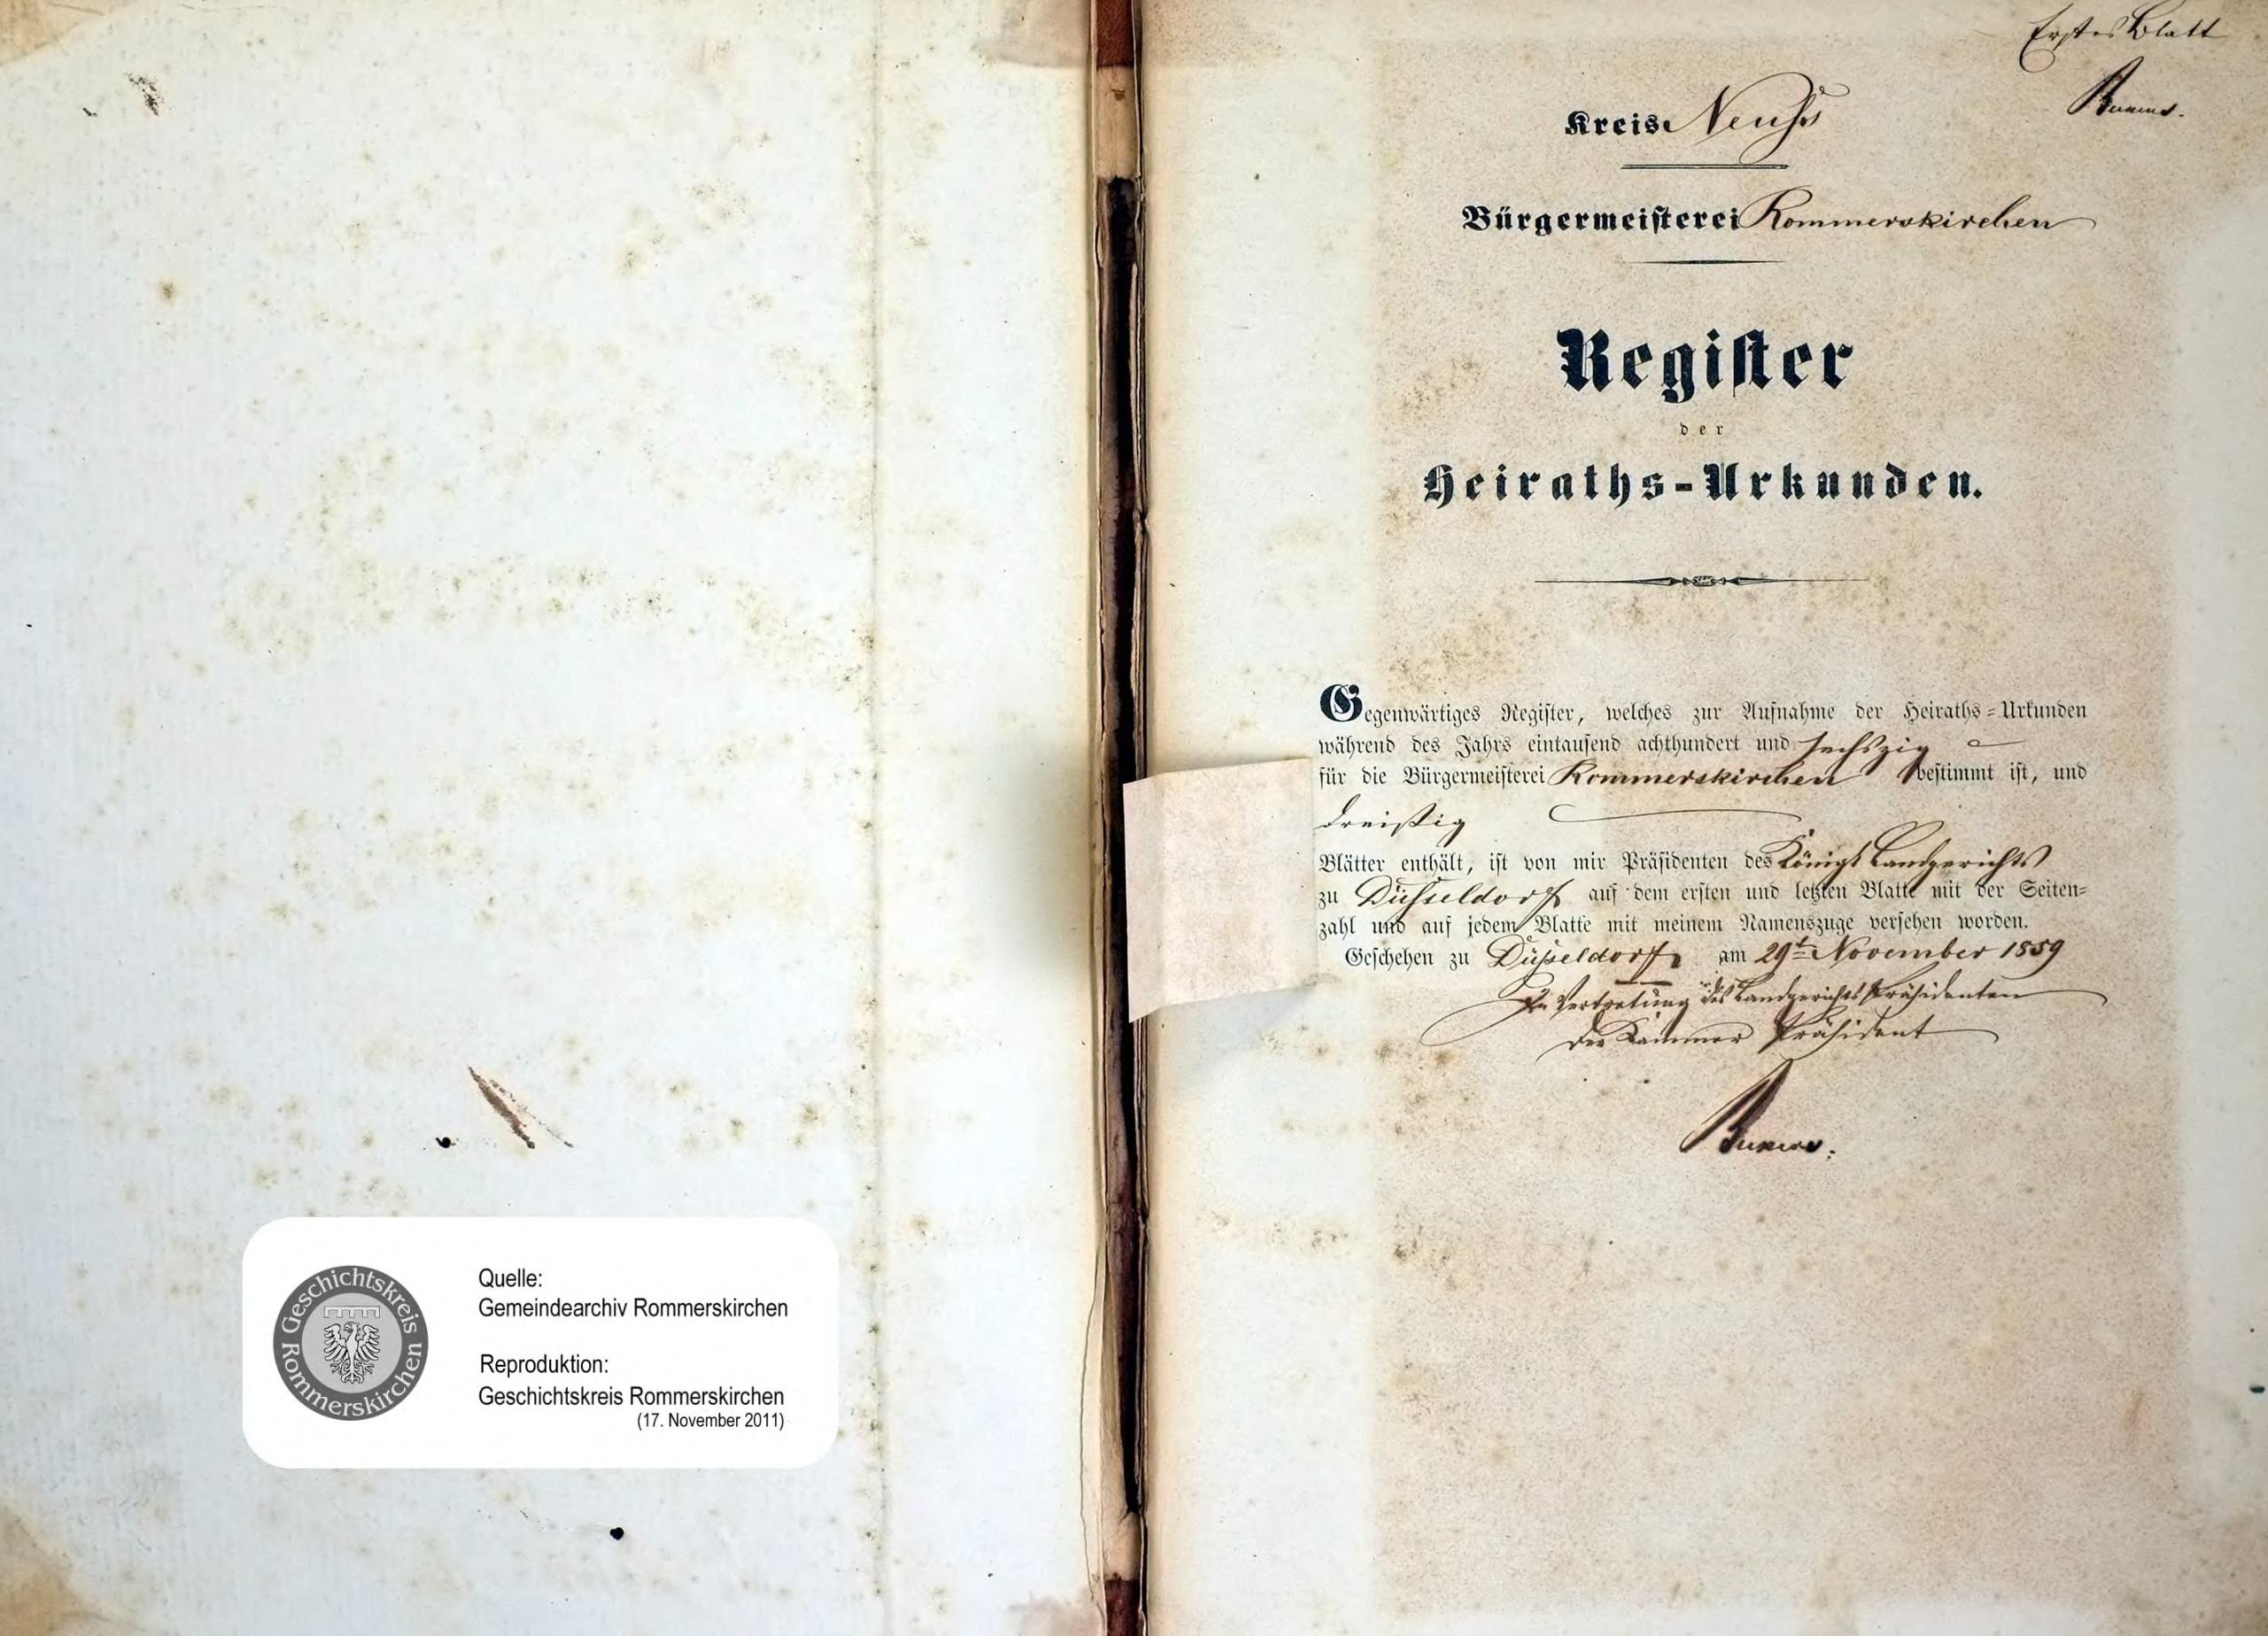 Erstes Blatt
Kreis Neuß
Bürgermeisterei Rommerskirchen
Register
der
Heiraths-Urkunden.
Gegenwärtiges Register, welches zur Aufnahme der Heiraths-Urkunden
während des Jahrs eintausend achthundert und sechszig
für die Bürgermeisterei Rommerskirchen bestimmt ist, und
dreißig
Blätter enthält, ist von mir Präsidenten des Königl Landgerichts
zu Düsseldorf auf dem ersten und letzten Blatte mit der Seiten-
zahl und auf jedem Blatte mit meinem Namenszuge versehen worden.
Geschehen zu Düsseldorf am 29t November 1859
In Vertretung des Landgerichts Präsidenten
Der Kammer Präsident
Geschichtskreis Rommerskirchen
Quelle:
Gemeindearchiv Rommerskirchen
Reproduktion:
Geschichtskreis Rommerskirchen
(17. November 2011)